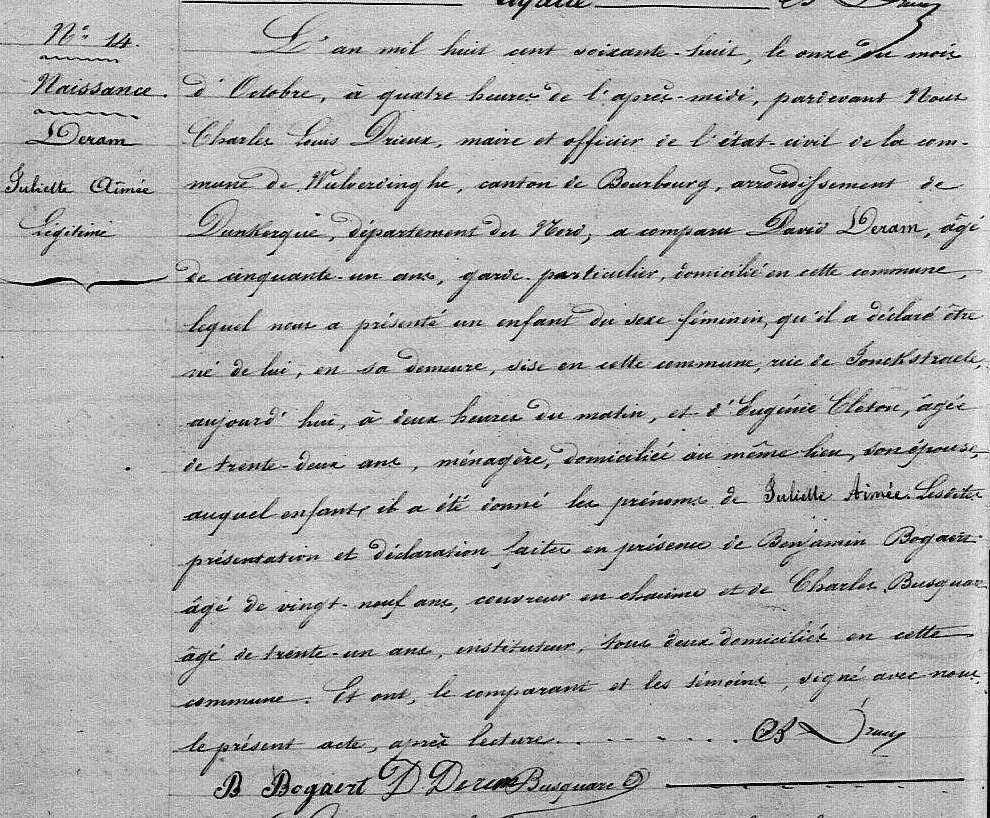 N° 14.
Naissance.
Deram
Juliette Aimée
Légitime
L'an mil huit cent soixante-huit, le onze du mois
d'Octobre, à quatre heures de l'après-midi, pardevant Nous
Charles Louis Drieux, maire et officier de l'état-civil de la com-
mune de Wulverdinghe, canton de Bourbourg, arrondissement de
Dunkerque, département du Nord, a comparu David Deram, âgé
de cinquante-un ans, garde-particulier, domicilié en cette commune,
lequel nous a présenté un enfant du sexe féminin, qu'il a déclaré être
né de lui, en sa demeure, sise en cette commune, rue de Jonckstraete,
aujourd'hui, à deux heures du matin, et d'Eugénie Cleton, âgée
de trente-deux ans, ménagère, domiciliée au même lieu, son épouse,
auquel enfant, il a été donné les prénoms de Juliette Aimée. Lesdites
présentation et déclaration faites en présence de Benjamin Bogaert
âgé de vingt-neuf ans, couvreur en chaume et de Charles Busquare
âgé de trente-un ans, instituteur, tous deux domiciliés en cette
commune. Et ont, le comparant et les témoins, signé avec nous,
le présent acte, après lecture.
B Bogaert D Deram Busquare